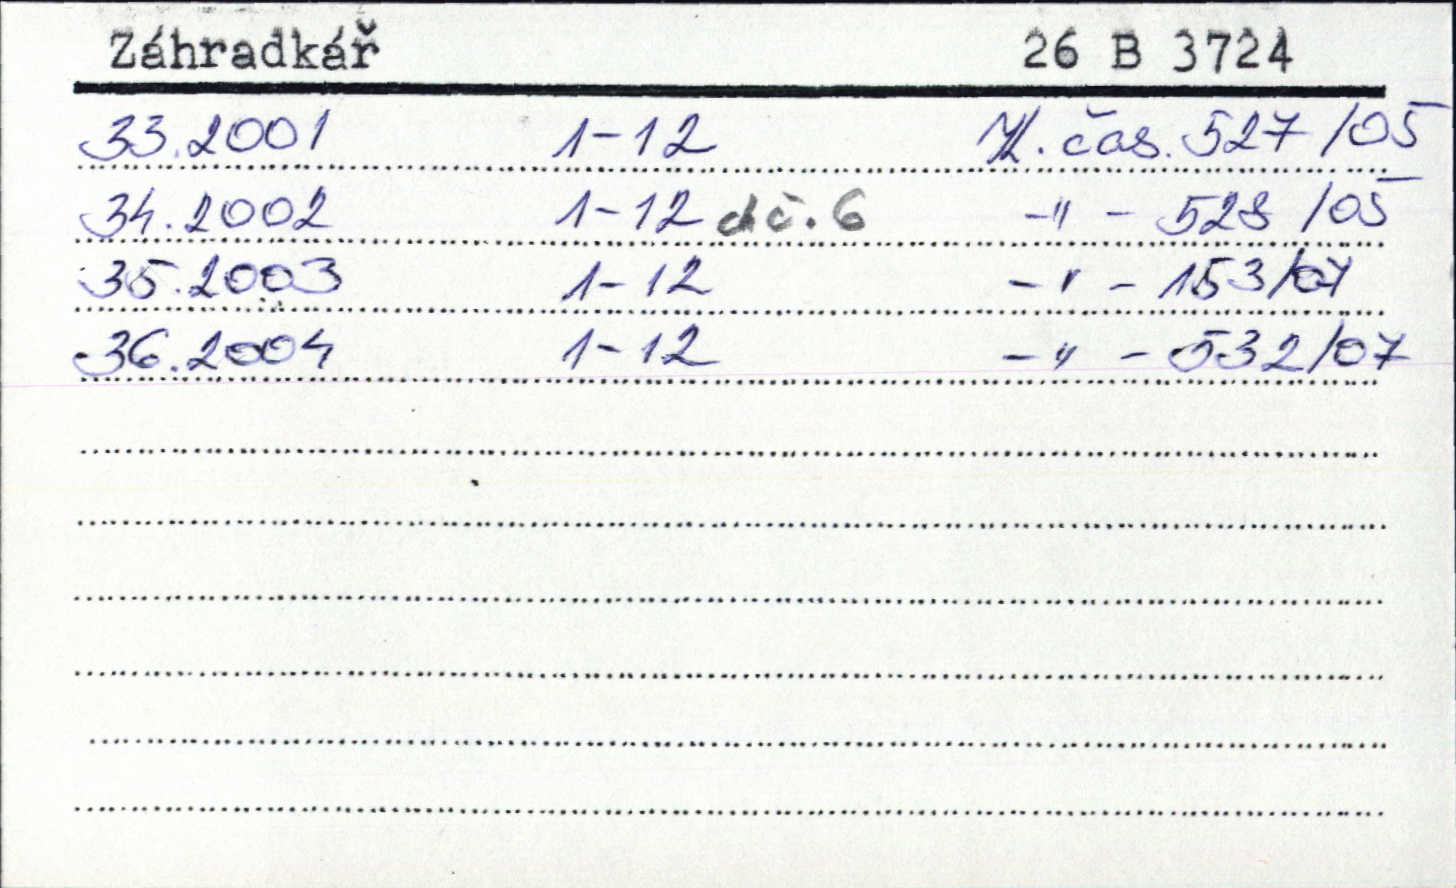 Záhradkář 26 B 3724
33.2001 1-12 čas. 527/05
34.2002 1-12 ch č. 6 -"- 528/05
35.2003 1-12 -"- 153/07
36.2004 1-12 -"- 532/07